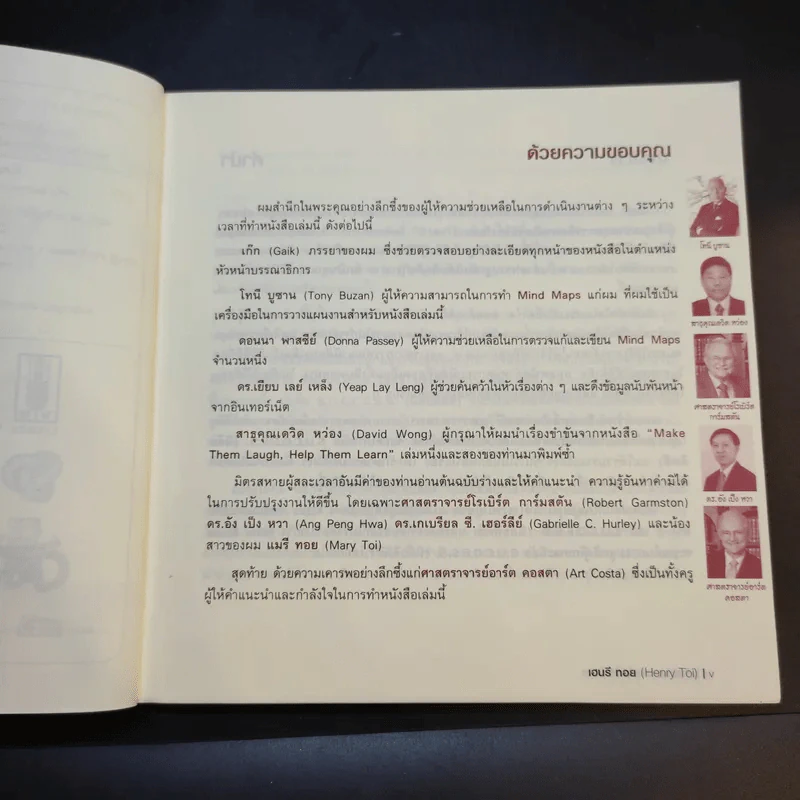 ด้วยความขอบคุณ
ผมสำนึกในพระคุณอย่างลึกซึ้งของผู้ให้ความช่วยเหลือในการดำเนินงานต่าง ๆ ระหว่าง
เวลาที่ทำหนังสือเล่มนี้ ดังต่อไปนี้
เก๊ก (Gaik) ภรรยาของผม ซึ่งช่วยตรวจสอบอย่างละเอียดทุกหน้าของหนังสือในตำแหน่ง
หัวหน้าบรรณาธิการ
โทนี บูซาน (Tony Buzan) ผู้ให้ความสามารถในการทำ Mind Maps แก่ผม ที่ผมใช้เป็น
เครื่องมือในการวางแผนงานสำหรับหนังสือเล่มนี้
ดอนนา พาสซีย์ (Donna Passey) ผู้ให้ความช่วยเหลือในการตรวจแก้และเขียน Mind Maps
จำนวนหนึ่ง
ดร.เยียบ เลย์ เหล็ง (Yeap Lay Leng) ผู้ช่วยค้นคว้าในหัวเรื่องต่าง ๆ และดึงข้อมูลนับพันหน้า
จากอินเทอร์เน็ต
สาธุคุณเดวิด หว่อง (David Wong) ผู้กรุณาให้ผมนำเรื่องขำขันจากหนังสือ “Make
Them Laugh, Help Them Learn” เล่มหนึ่งและสองของท่านมาพิมพ์ซ้ำ
มิตรสหายผู้สละเวลาอันมีค่าของท่านอ่านต้นฉบับร่างและให้คำแนะนำ ความรู้อันหาค่ามิได้
ในการปรับปรุงงานให้ดีขึ้น โดยเฉพาะศาสตราจารย์โรเบิร์ต การ์มสตัน (Robert Garmston)
ดร.อัง เป็ง หวา (Ang Peng Hwa) ดร.เกเบรียล ซี. เฮอร์ลีย์ (Gabrielle C. Hurley) และน้อง
สาวของผม แมรี ทอย (Mary Toi)
สุดท้าย ด้วยความเคารพอย่างลึกซึ้งแก่ศาสตราจารย์อาร์ต คอสตา (Art Costa) ซึ่งเป็นทั้งครู
ผู้ให้คำแนะนำและกำลังใจในการทำหนังสือเล่มนี้
โทนี บูซาน
สาธุคุณเดวิด หว่อง
ศาสตราจารย์โรเบิร์ต
การ์มสตัน
ดร. อัง เป็ง หวา
ศาสตราจารย์อาร์ต
คอสตา
เฮนรี ทอย (Henry Toi) | v